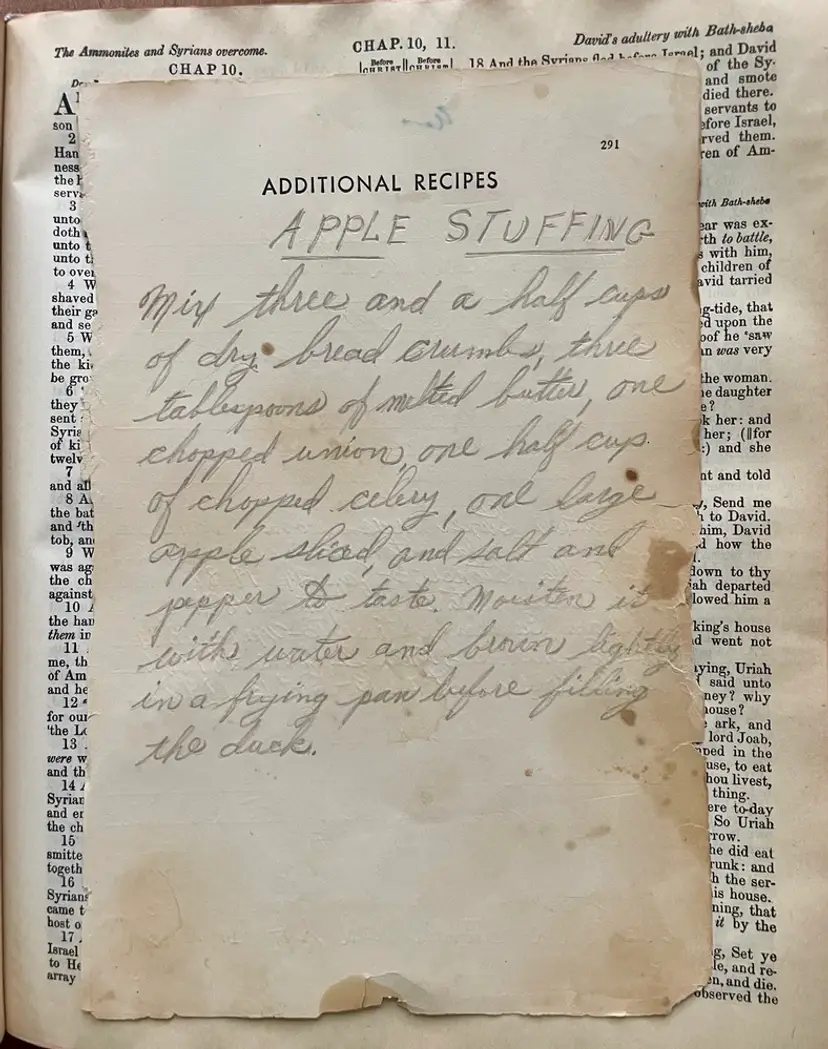 The Ammonites and Syrians overcome.
CHAP. 10, 11.
David's adultery with Bath-sheba
CHAP 10.
Before CHRIST Before
18 And the Syrians fled before Israel; and David
of the Sy-
and smote
died there.
servants to
efore Israel,
rved them.
ren of Am-
with Bath-sheba
ear was ex-
rth to battle,
s with him,
children of
avid tarried
g-tide, that
ed upon the
oof he 'saw
an was very
the woman.
he daughter
e?
k her: and
her; (||for
:) and she
nt and told
y, Send me
h to David.
him, David
d how the
down to thy
iah departed
lowed him a
king's house
d went not
aying, Uriah
said unto
ney? why
house?
ark, and
lord Joab,
ped in the
use, to eat
hou livest,
thing.
ere to-day
So Uriah
rrow.
he did eat
runk: and
h the ser-
is house.
ning, that
it by the
g, Set ye
le, and re-
en, and die.
observed the
A
son
2
Han
ness
the
serv
3
unto
doth
unto t
unto t
to over
4 W
shaved
their ga
and se
5 W
them,
the ki
be gro
6
they
sent
Syria
of ki
twelv
7
and all
8 A
the bat
and the
tob, an
9 W
was aga
the ch
against
10
the han
them in
11
me, th
of Am
and he
12
for our
'the Lo
13
were w
and th
14
Syrian
and en
the ch
15
smitte
togeth
16
Syrians
came t
host o
17
Israel
to He
array
291
ADDITIONAL RECIPES
APPLE STUFFING
Mix three and a half cups
of dry bread crumbs, three
tablespoons of melted butter, one
chopped union, one half cup
of chopped celery, one large
apple sliced, and salt and
pepper to taste. Moisten it
with water and brown lightly
in a frying pan before filling
the duck.